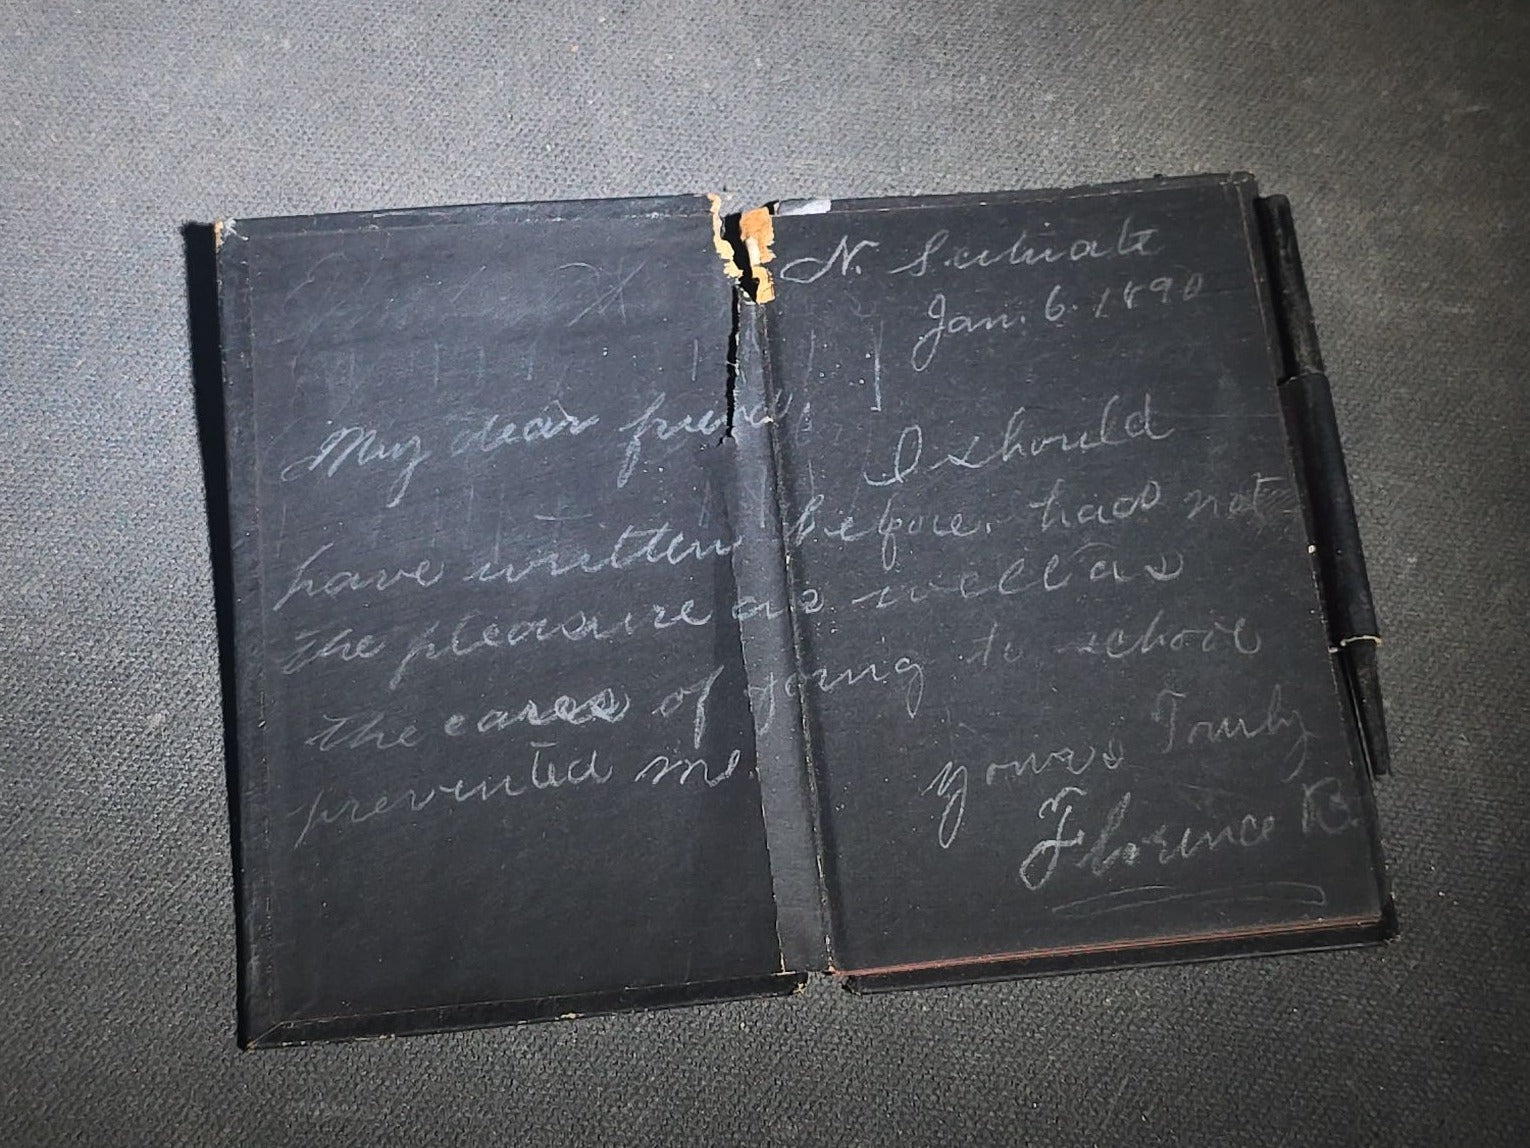 N. Scituate
Jan. 6. 1890
My dear friend,
I should
have written before, had not
the pleasure as well as
the cares of going to school
prevented me.
Yours Truly
Florence B.